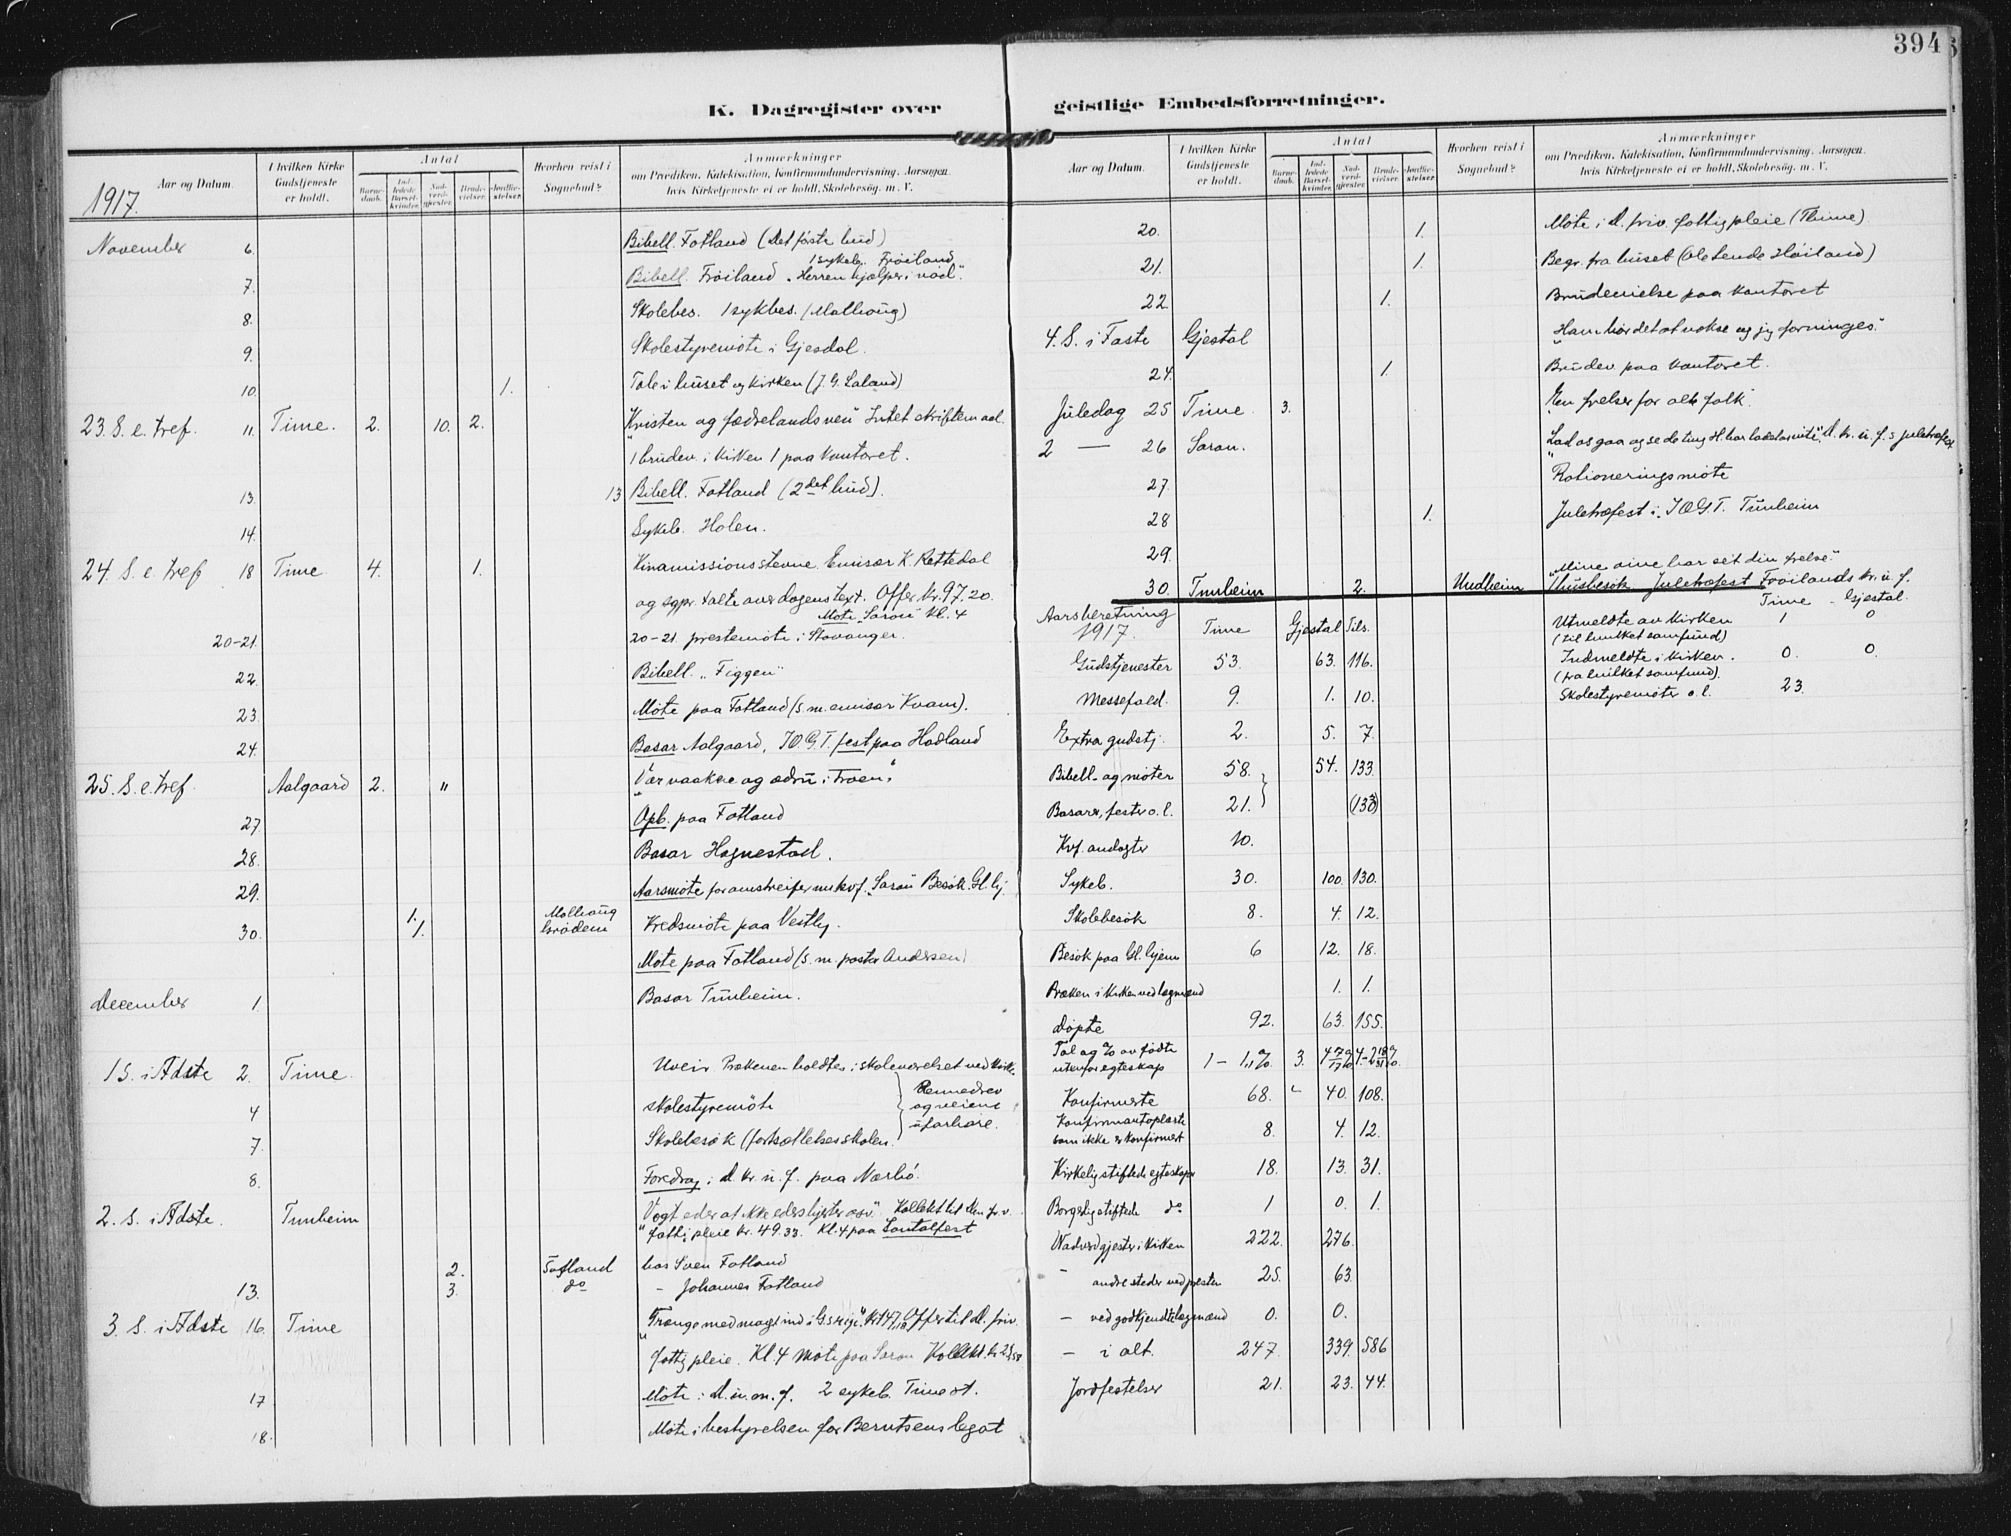 394
K. Dagregister over geistlige Embedsforretninger.
Aar og Datum.
I hvilken Kirke Gudstjeneste er holdt.
Antal
Barnedaab.
Indledede Barselkvinder.
Nadverdgjester.
Brudevielser.
Jordfæstelser.
Hvorhen reist i Sognebud?
Anmærkninger
om Prædiken, Katekisation, Konfirmandundervisning. Aarsagen
hvis Kirketjeneste ei er holdt. Skolebesøg. m. V.
1917.
November 6. Bibell. Fotland (Det første bud)
1 sykeb. Frøiland
7. Bibell. Frøiland "Herren hjælper i nød".
8. Skolebes. 1 sykbes. (Malhaug)
9. Skolestyremøte i Gjesdal.
10. 1. Tale i huset og kirken (J. G. Laland)
23. S. e. tref. 11. Time. 2. 10. 2. "Kristen og fædrelandsven" Intet skriftemaal.
1 brudev. i kirken 1 paa kontoret.
13. 13 Bibell. Fotland (2det bud).
14. Sykeb. Holen.
24. S. e. tref 18 Time 4. 1. Kinamissionsstevne. Emisær K. Rettedal
og sgpr. talte over dagens text. Offer kr. 97.20.
Møte "Saron" kl. 4
20-21. 20-21 prestemøte i Stavanger.
22. Bibell. "Figgen"
23. Møte paa Fotland (s. m. emisær Kvam).
24. Basar Aalgaard, I.O.G.T. fest paa Hadland
25. S. e. tref. Aalgaard 2. " "Vær vaakne og ædru i troen"
27 Opb. paa Fotland
28. Basar Hognestad.
29. Aarsmøte for omstreifermis.kvf. "Saron" Besøk Gl. hj.
30. 1. 1. Malhaug Brødem Kredsmøte paa Vestly.
Møte paa Fotland (s. m. pastor Andersen)
December 1. Basar Tunheim.
1 S. i Adste 2. Time. Uveir. Prækenen holdtes i skoleværelset ved kirk.
4 Skolestyremøte
7. Skolebesøk (fortsættelsesskolen.
Rennedrev og veiene ufarbare.
8. Foredrag i d. kr. u. f. paa Nærbø.
2. S. i Adste. Tunheim "Vogt eder at ikke eders hjerter osv." Kollekt til den pr. v.
fattigpleie kr. 49.33. Kl. 4 paa Santalfest
2. Fotland hos Sven Fotland
13. 3. do - Johannes Fotland
3. S. i Adste 16. Time "Trænge med magt ind i G. s rige". Offer til d. priv.
fattigpleie. Kl. 4 møte paa Saron Kollekt.
17 Møte i d. u. m. f. 2 sykeb. Time st.
18. Møte i bestyrelsen for Berntsens legat
Aar og Datum.
I hvilken Kirke Gudstjeneste er holdt.
Antal
Barnedaab.
Indledede Barselkvinder.
Nadverdgjester.
Brudevielser.
Jordfæstelser.
Hvorhen reist i Sognebud?
Anmærkninger
om Prædiken, Katekisation, Konfirmandundervisning. Aarsagen
hvis Kirketjeneste ei er holdt. Skolebesøg. m. V.
20. 1. Møte i d. priv. fattigpleie (Thime)
21. 1. Begr. fra huset (Ole Lende Høiland)
22. 1. Brudevielse paa kontoret
4. S. i Faste Gjestal "Ham bør det at vokse og jeg forringes."
24. 1. Brudev. paa kontoret.
Juledag 25 Time. 3. "En frelser for alt folk".
2 — 26 Saron. "Lad os gaa og se de ting H. har ladet os vite". D. kr. u. f. s juletræfest
27. Rationeringsmøte
28 1. Juletræfest i I.O.G.T. Tunheim
29. "Mine øine har set din frelse"
30. Tunheim 2. Undheim Husbesøk. Juletræfest Frøilands kr. u. f.
Aarsberetning 1917. Time Gjestal Tils.
Time Gjestal.
Utmeldte av kirken 1 0
(til hvilket samfund)
Gudstjenester 53. 63. 116. Indmeldte i kirken. 0. 0.
(fra hvilket samfund).
Messefald. 9. 1. 10. Skolestyremøter o. l. 23.
Extra gudstj. 2. 5. 7.
Bibell. og møter 58. 54. 133.
Basarer, fester o. l. 21. (133)
Kvf. andagter 10.
Sykeb. 30. 100. 130.
Skolebesøk 8. 4. 12.
Besøk paa Gl. hjem 6 12. 18.
Præken i kirken ved lægmænd 1. 1.
Døpte 92. 63. 155.
Tal og % av fødte
utenfor egteskap 1 – 1,1%. 3.
Konfirmerte 68. 40. 108.
Konfirmantoplæste
som ikke er konfirmert 8. 4. 12.
Kirkelig stiftede egteskaper 18. 13. 31.
Borgerlig stiftede do 1 0. 1.
Nadverdgjester i kirken 222. 276.
- andre steder ved presten 25. 63.
- ved godkjendte lægmænd 0. 0.
- i alt. 247. 339. 586
Jordfestelser 21. 23. 44.